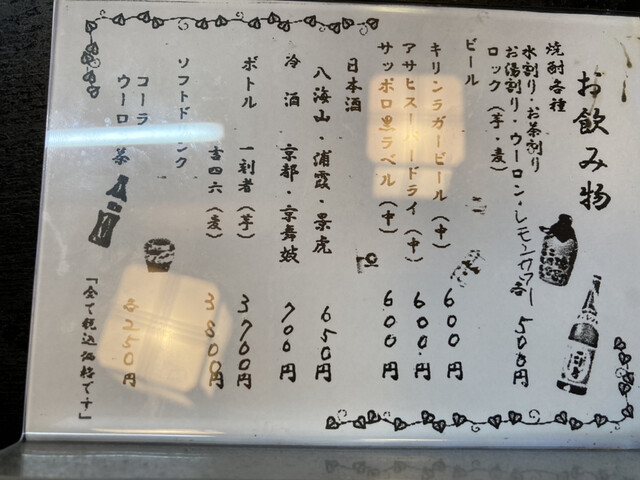 お飲み物
焼酎各種
水割り・お茶割り
お湯割り・ウーロン・レモンサワー
ロック(芋・麦) 各 500円
ビール
キリンラガービール(中) 600円
アサヒスーパードライ(中) 600円
サッポロ黒ラベル(中) 600円
日本酒
八海山・浦霞・景虎 650円
冷酒 京都・京舞妓 700円
ボトル 一刻者(芋) 3700円
吉四六(麦) 3800円
ソフトドリンク
コーラ
ウーロン茶 各250円
「全て税込価格です」